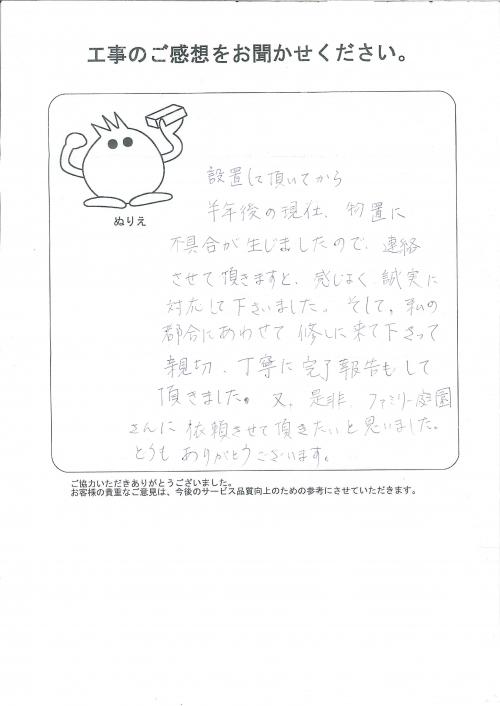 工事のご感想をお聞かせください。
ぬりえ
設置して頂いてから
半年後の現在、物置に
不具合が生じましたので、連絡
させて頂きますと、感じよく、誠実に
対応して下さいました。そして、私の
都合にあわせて修しに来て下さって
親切、丁寧に完了報告もして
頂きました。又、是非、ファミリー庭園
さんに依頼させて頂きたいと思いました。
とうも ありがとうございます。
ご協力いただきありがとうございました。
お客様の貴重なご意見は、今後のサービス品質向上のための参考にさせていただきます。